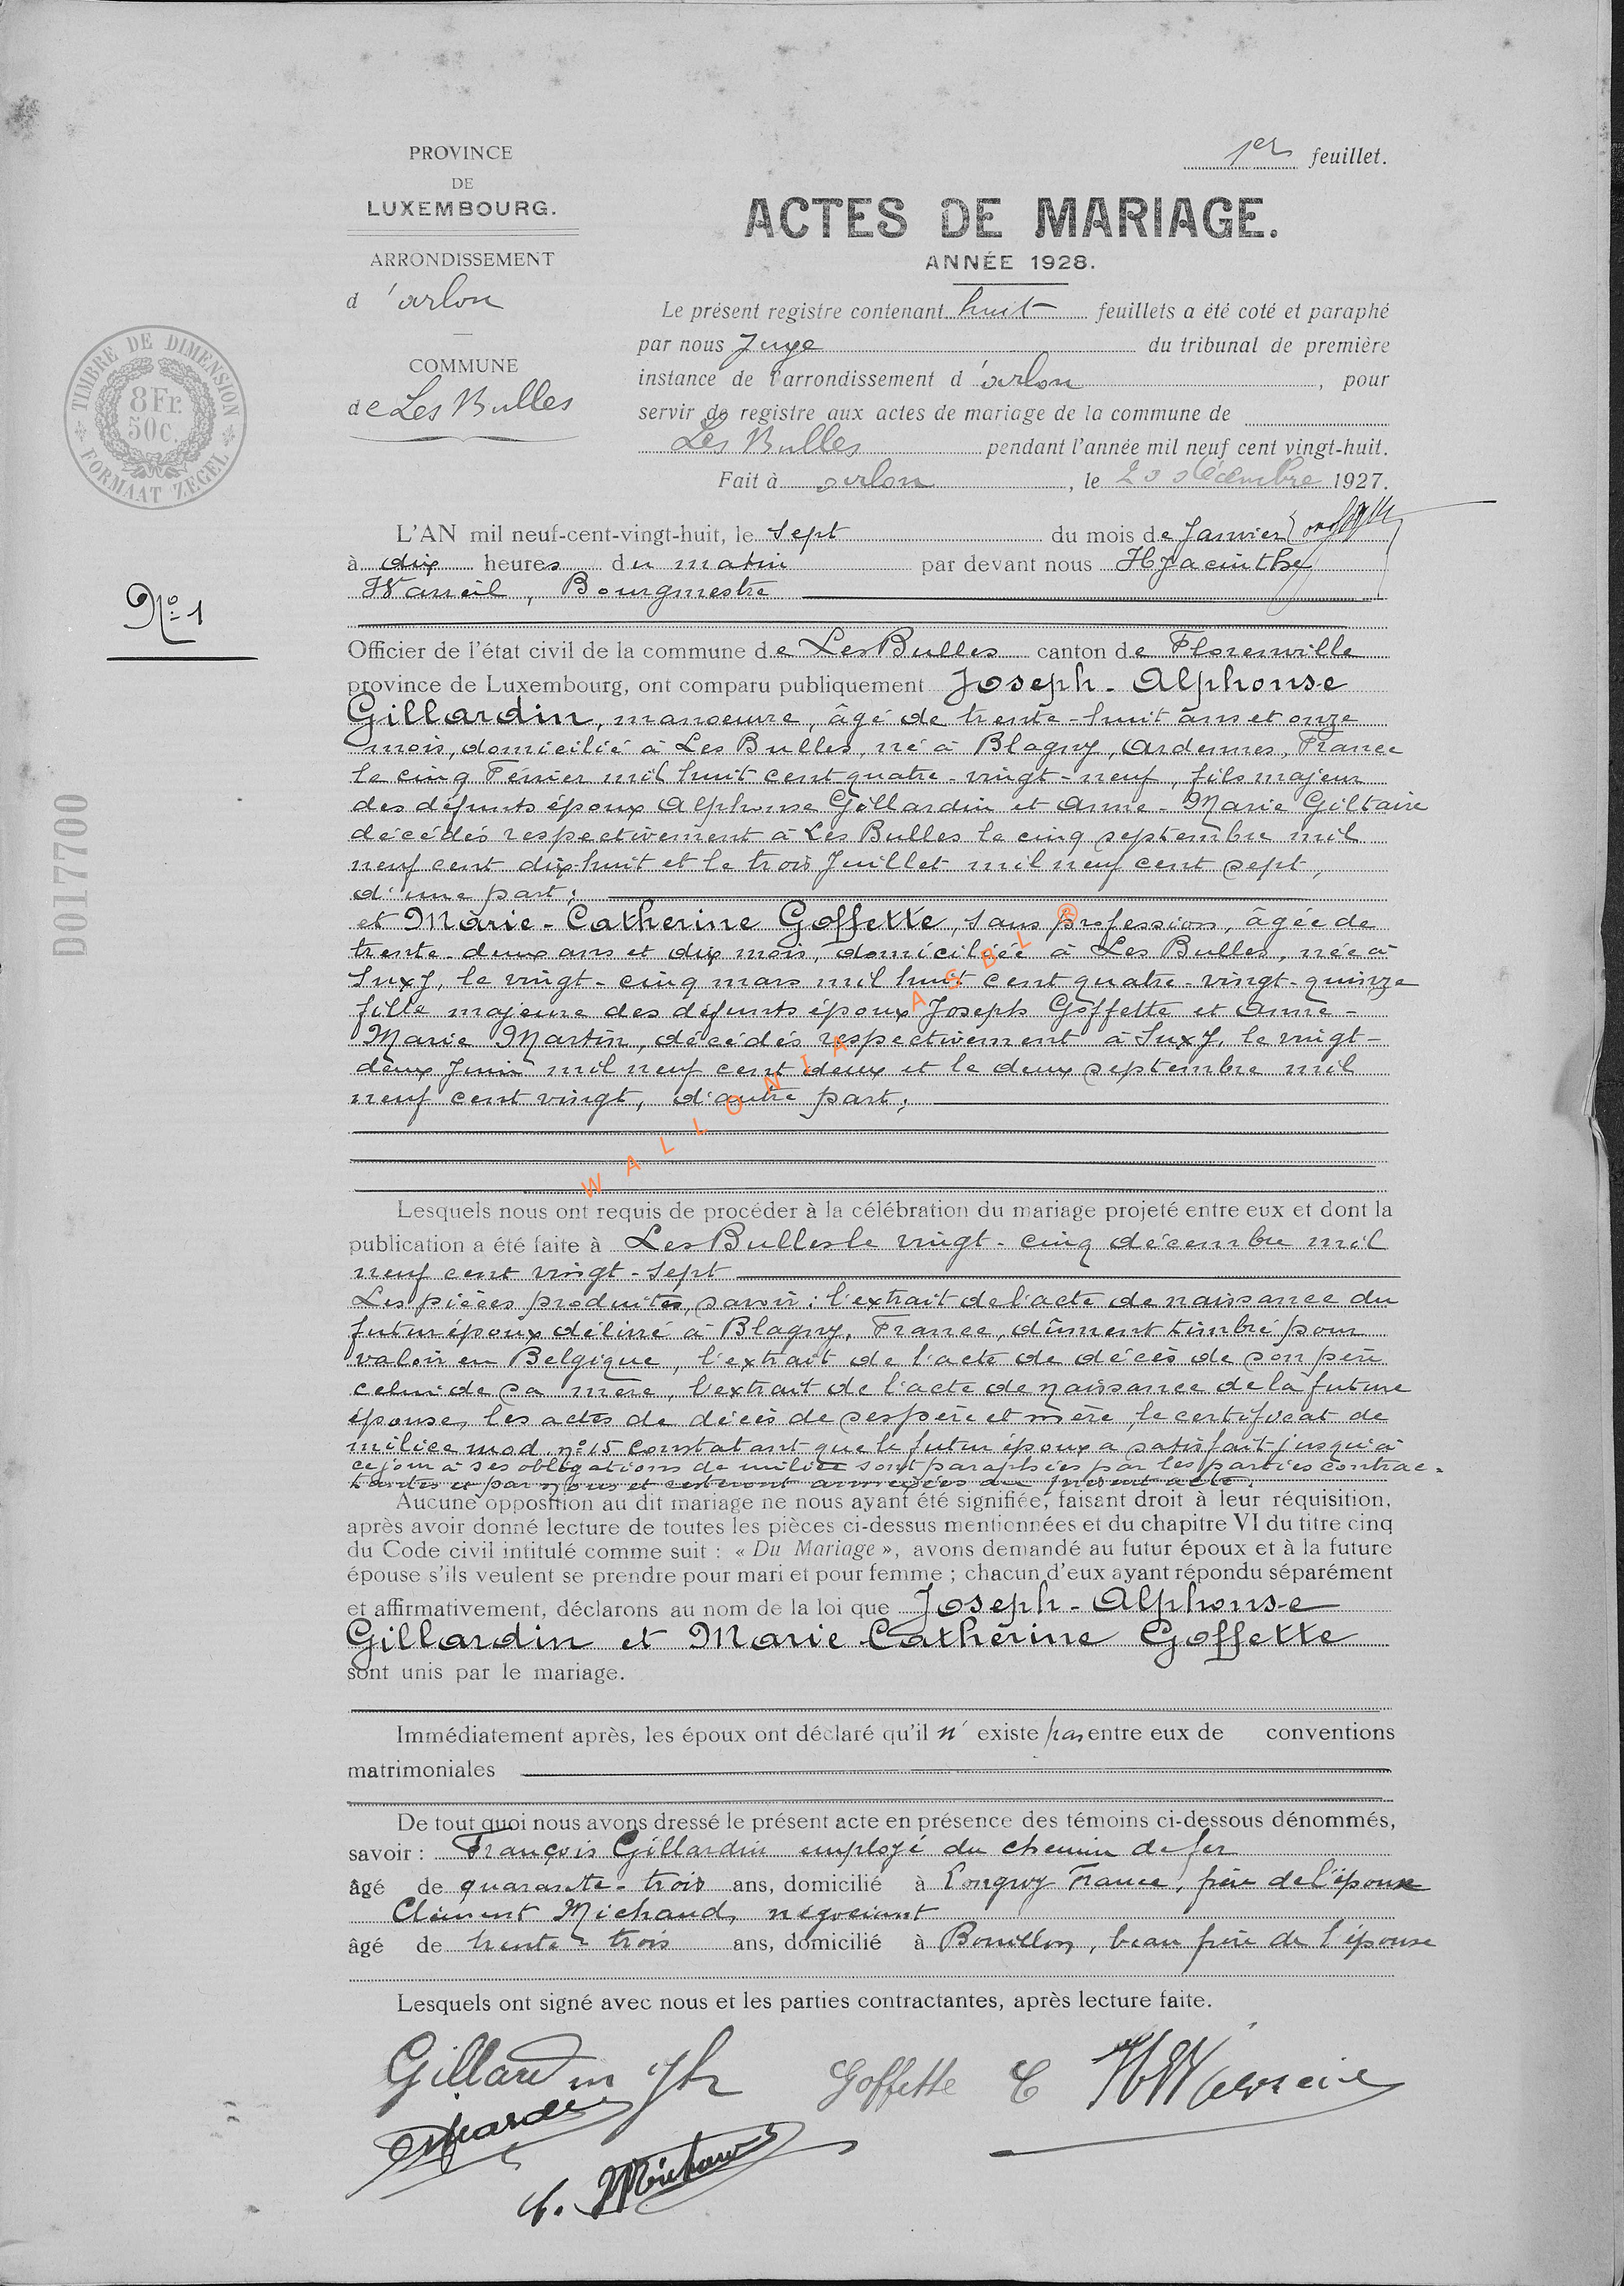 1er feuillet.
PROVINCE
DE
LUXEMBOURG.
ARRONDISSEMENT
d'arlon
COMMUNE
de Les Bulles
TIMBRE DE DIMENSION
8Fr.
50c.
FORMAAT ZEGEL
ACTES DE MARIAGE.
ANNÉE 1928.
Le présent registre contenant huit feuillets a été coté et paraphé
par nous Juge du tribunal de première
instance de l'arrondissement d'arlon, pour
servir de registre aux actes de mariage de la commune de
Les Bulles pendant l'année mil neuf cent vingt-huit.
Fait à arlon, le 20 décembre 1927.
L'AN mil neuf-cent-vingt-huit, le sept du mois de Janvier
à dix heures du matin par devant nous Hyacinthe
Warneil, Bourgmestre
No 1
D017700
Officier de l'état civil de la commune de Les Bulles canton de Florenville
province de Luxembourg, ont comparu publiquement Joseph-Alphonse
Gillardin, manoeuvre, âgé de trente-huit ans et onze
mois, domicilié à Les Bulles, né à Blagny, Ardennes, France
le cinq Février mil huit cent quatre-vingt-neuf, fils majeur
des défunts époux Alphonse Gillardin et Anne-Marie Giltaire
décédés respectivement à Les Bulles le cinq septembre mil
neuf cent dix-huit et le trois Juillet mil neuf cent sept,
d'une part;
et Marie-Catherine Goffette, sans profession, âgée de
trente-deux ans et dix mois, domiciliée à Les Bulles, née à
Suxy, le vingt-cinq mars mil huit cent quatre-vingt-quinze
fille majeure des défunts époux Joseph Goffette et Anne-
Marie Martin, décédés respectivement à Suxy, le vingt-
deux Juin mil neuf cent deux et le deux septembre mil
neuf cent vingt, d'autre part;
WALLONIA ASBL ®
Lesquels nous ont requis de procéder à la célébration du mariage projeté entre eux et dont la
publication a été faite à Les Bulles le vingt-cinq décembre mil
neuf cent vingt-sept
Les pièces produites, savoir: l'extrait de l'acte de naissance du
futur époux délivré à Blagny, France, dûment timbré pour
valoir en Belgique, l'extrait de l'acte de décès de son père
celui de sa mère, l'extrait de l'acte de naissance de la future
épouse, les actes de décès de ses père et mère, le certificat de
milice mod. no 15 constatant que le futur époux a satisfait jusqu'à
ce jour à ses obligations de milice sont paraphées par les parties contrac-
tantes et par nous et resteront annexées au présent acte.
Aucune opposition au dit mariage ne nous ayant été signifiée, faisant droit à leur réquisition,
après avoir donné lecture de toutes les pièces ci-dessus mentionnées et du chapitre VI du titre cinq
du Code civil intitulé comme suit : « Du Mariage », avons demandé au futur époux et à la future
épouse s'ils veulent se prendre pour mari et pour femme ; chacun d'eux ayant répondu séparément
et affirmativement, déclarons au nom de la loi que Joseph-Alphonse
Gillardin et Marie Cathérine Goffette
sont unis par le mariage.
Immédiatement après, les époux ont déclaré qu'il n'existe pas entre eux de conventions
matrimoniales
De tout quoi nous avons dressé le présent acte en présence des témoins ci-dessous dénommés,
savoir : François Gillardin employé du chemin de fer
âgé de quarante-trois ans, domicilié à Longwy France, frère de l'épouse
Clément Michaud, négociant
âgé de trente-trois ans, domicilié à Bouillon, beau frère de l'épouse
Lesquels ont signé avec nous et les parties contractantes, après lecture faite.
Gillardin Jh Goffette C
C. Michaud